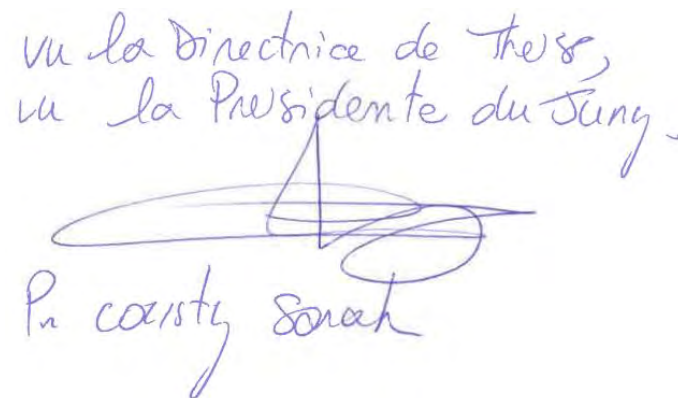 vu la Directrice de These,
vu la Presidente du Jury.
Pr Coursty Sarah